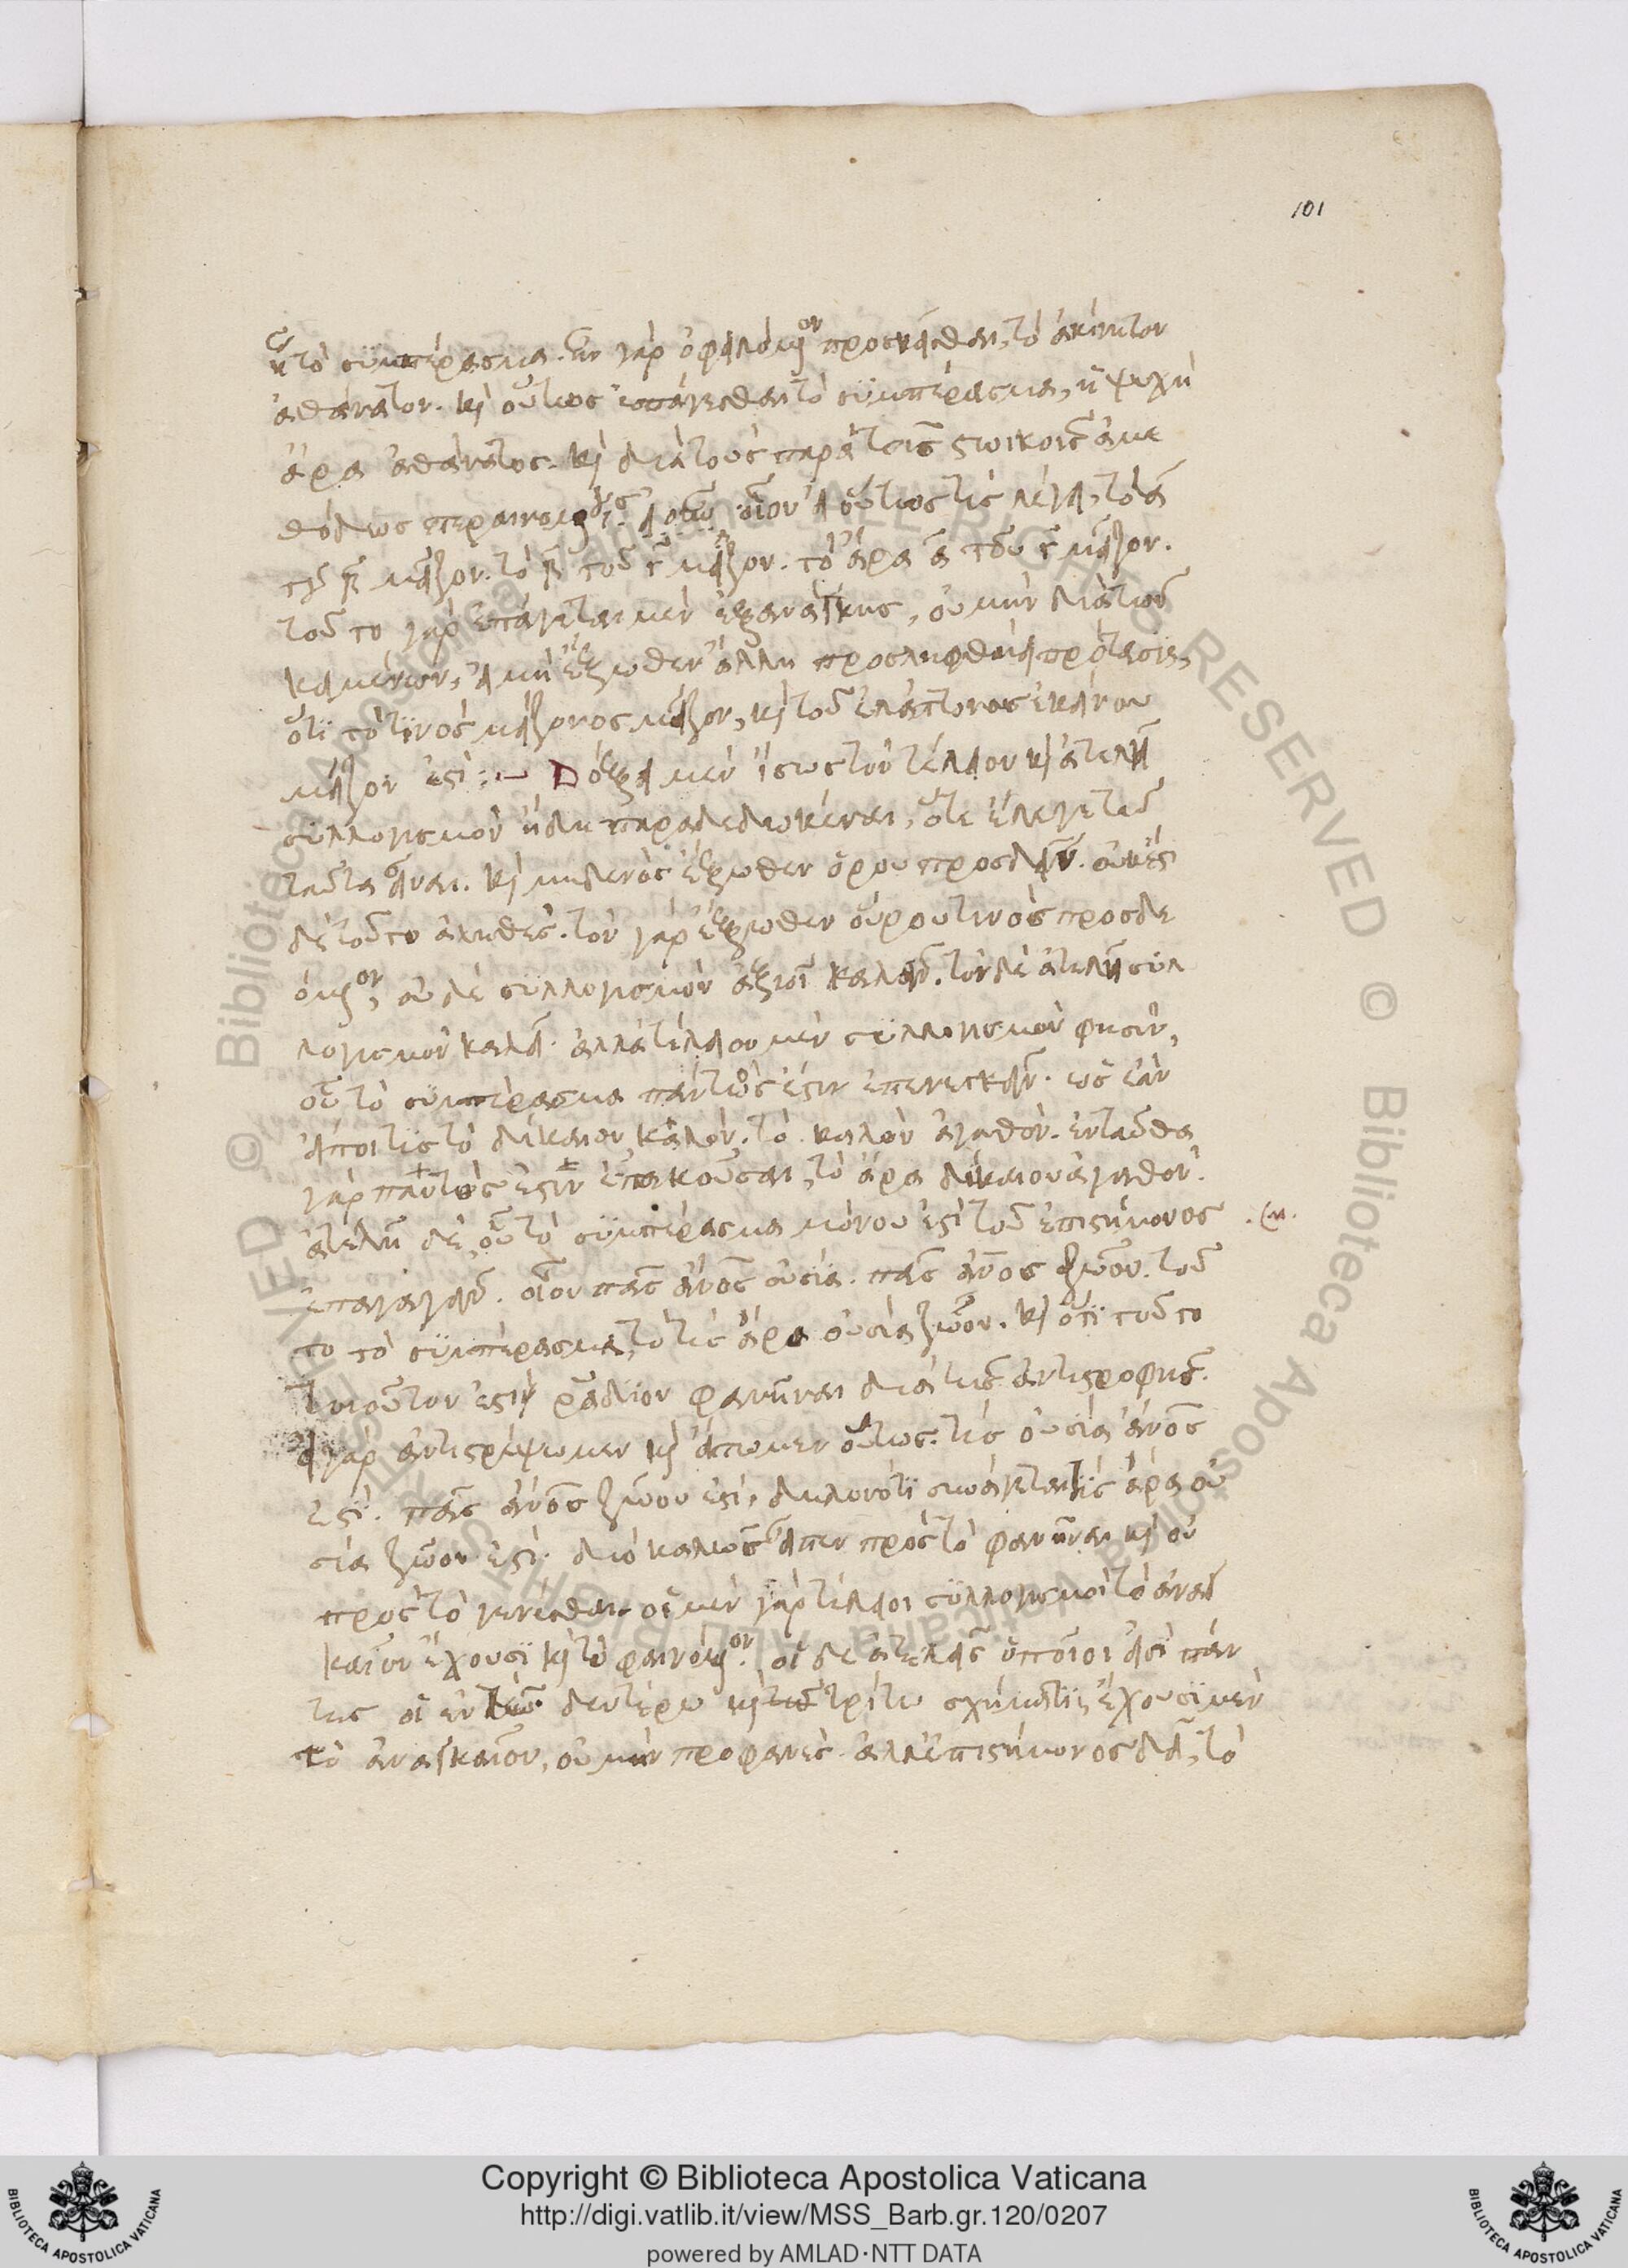 101
ἢ τὸ συμπέρασμα. ἦν γὰρ ὀφειλόμενον προσκεῖσθαι, τὸ ἀκίνητον
ἀθάνατον. καὶ οὕτως ἐπάγεσθαι τὸ συμπέρασμα, ἡ ψυχὴ
ἄρα ἀθάνατος. καὶ διὰ τοὺς παρὰ τοῖς στωικοῖς ἀμε
θόδως περαινομένους. οἷον εἰ οὕτως τις λέγει, τὸ α
τοῦ β μεῖζον. τὸ β τοῦ γ μεῖζον. τὸ ἄρα α τοῦ γ μεῖζον.
τοῦτο γὰρ ἐπάγεται μὲν ἐξ ἀνάγκης, οὐ μὴν διὰ τῶν
κειμένων, εἰ μὴ ἔξωθεν ἄλλη προσληφθείη πρότασις,
ὅτι τὸ τινὸς μείζονος μεῖζον, καὶ τοῦ ἐλάττονος ἐκείνου
μεῖζον ἐστί :~ Δόξει μὲν ἴσως τὸν τέλειον καὶ ἀτελῆ
συλλογισμὸν ἤδη παραδεδωκέναι, ὅτε ἔλεγε τῷ
ταῦτα εἶναι. καὶ μηδενὸς ἔξωθεν ὅρου προσδεῖν. οὐκ ἔστι
δὲ τοῦτο ἀληθές. τὸν γὰρ ἔξωθεν ὅρου τινὸς προσδε
όμενον, οὐδὲ συλλογισμὸν ἀξιοῖ καλεῖν. τὸν δὲ ἀτελῆ συλ
λογισμὸν καλεῖ. ἀλλὰ τέλειον μὲν συλλογισμὸν φησὶν,
οὗ τὸ συμπέρασμα παντός ἐστιν ἐπενεγκεῖν. ὡς ἐὰν
εἴποι τις τὸ δίκαιον καλόν, τὸ καλὸν ἀγαθόν. ἐνταῦθα
γὰρ παντός ἐστιν ἐπακοῦσαι, τὸ ἄρα δίκαιον ἀγαθόν.
ἀτελῆ δέ, οὗ τὸ συμπέρασμα μόνου ἐστὶ τοῦ ἐπιστήμονος
ἐπαγαγεῖν. οἷον πᾶς ἄνος οὐσία. πᾶς ἄνος ζῶον. τοῦ
το τὸ συμπέρασμα, τὸ τὶς ἄρα οὐσία ζῶον. καὶ ὅτι τοῦτο
τοιοῦτον ἐστὶ ῥάδιον φανῆναι διὰ τῆς ἀντιστροφῆς.
εἰ γὰρ ἀντιστρέψωμεν καὶ εἴπωμεν οὕτως. τὶς οὐσία ἄνος
ἐστί. πᾶς ἄνος ζῶον ἐστί, δηλονότι συνάγεται τὶς ἄρα οὐ
σία ζῶον ἐστί. διὸ καλῶς εἶπεν πρὸς τὸ φανῆναι καὶ οὐ
πρὸς τὸ γενέσθαι. οἱ μὲν γὰρ τέλειοι συλλογισμοὶ τὸ ἀναγ
καῖον ἔχουσι καὶ τὸ φαινόμενον. οἱ δὲ ἀτελεῖς ὁποῖοι εἰσὶ πάν
τες οἱ ἐν τῷ δευτέρω καὶ τῷ τρίτω σχήματι, ἔχουσι μὲν
τὸ ἀναγκαῖον, οὐ μὴν προφανές. ἀλλ' ἐπιστήμονος δεῖ, τὸ
Copyright © Biblioteca Apostolica Vaticana
http://digi.vatlib.it/view/MSS_Barb.gr.120/0207
powered by AMLAD·NTT DATA